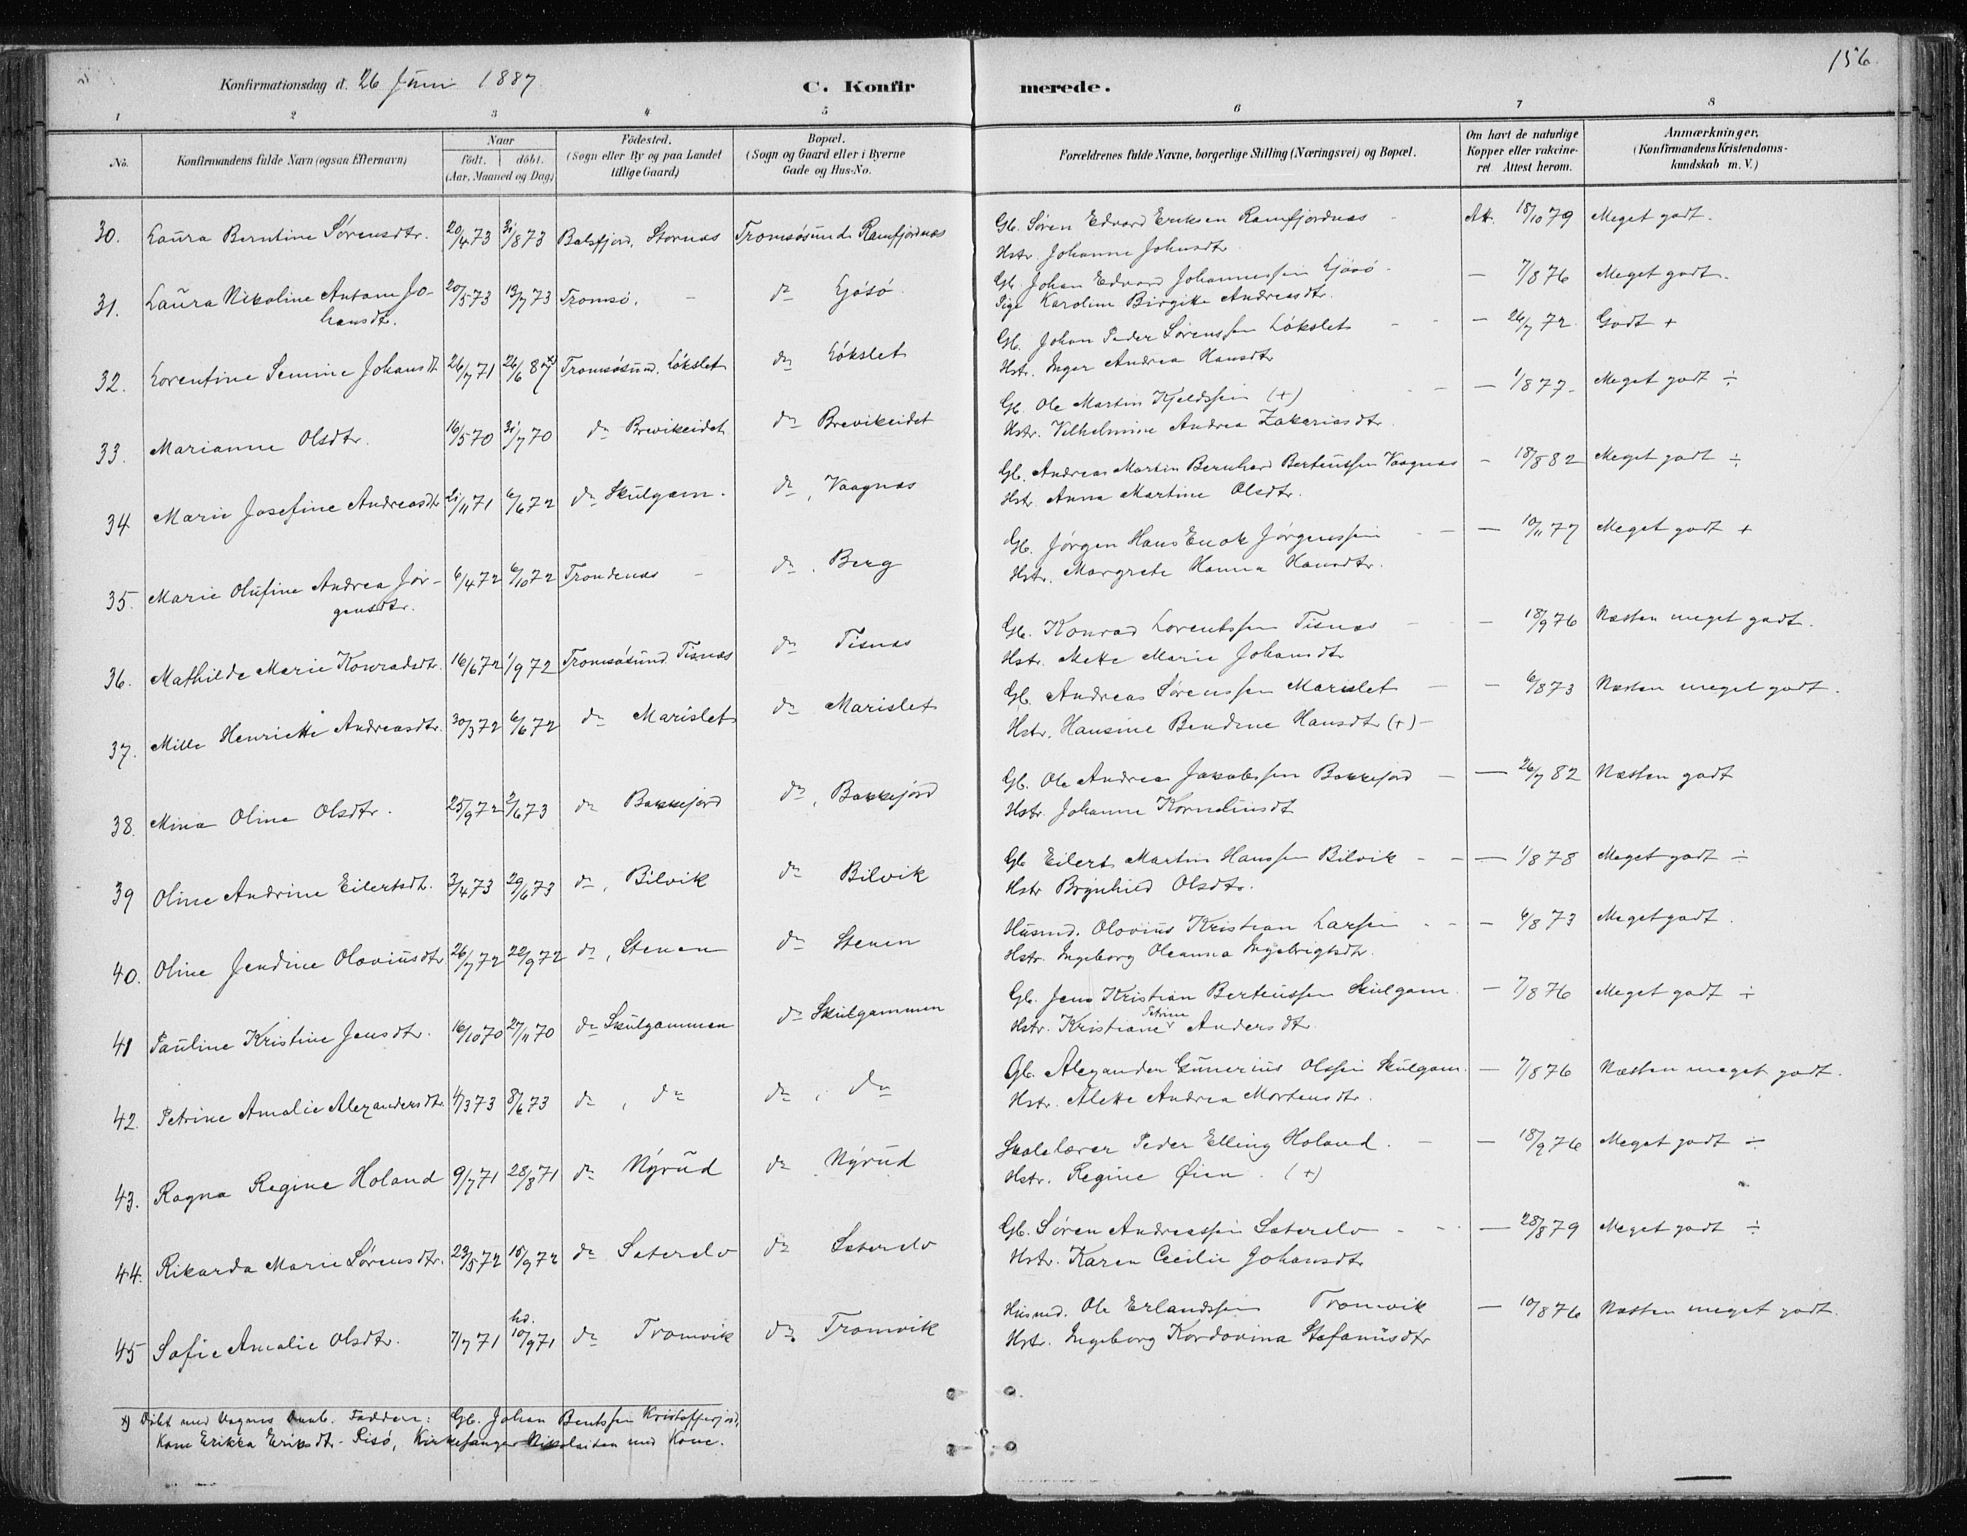 156.
Konfirmationsdag d. 26 Juni 1887. C. Konfirmerede.
1 2 3 4 5 6 7 8
No. Konfirmandens fulde Navn (ogsaa Efternavn) Naar födt. döbt. (Aar, Maaned og Dag) Födested. (Sogn eller By og paa Landet tillige Gaard) Bopæl. (Sogn og Gaard eller i Byerne Gade og Hus-No. Forældrenes fulde Navne, borgerlige Stilling (Næringsvei) og Bopæl. Om havt de naturlige Kopper eller vakcineret Attest herom. Anmærkninger. (Konfirmandens Kristendomskundskab m. V.)
30. Laura Berntine Sørensdtr. 20/4 73 31/8 73 Balsfjord, Stornæs Tromsøsund. Ramfjordnæs Gb. Søren Edvard Eriksen Ramfjordnæs - Att. 18/10 79 Meget godt.
Hstr. Johanne Johnsdtr.
31. Laura Nikoline Antom Jo- 20/5 73 13/7 73 Tromsø. - do Gjøsö Gb. Johan Edvard Johannessen Gjösö - - 7/8 76 Meget godt.
hansdtr. Pige Karoline Birgitte Andreasdtr.
32. Lorentine Semine Johansdt. 26/7 71 26/6 87 x) Tromsøsund. Lökslet do Lökslet Gb. Johan Peder Sørenssen Lökslet - - 26/7 72. Godt +
Hstr. Inger Andrea Hansdtr
33. Marianne Olsdtr. 16/5 70 31/7 70 do Brevikeidet do Brevikeidet Gb. Ole Martin Kjeldssen (+) - - 1/8 77. Meget godt ÷
Hstr. Vilhelmine Andrea Zakariasdtr.
34 Marie Josefine Andreasdtr 21/11 71 6/6 72 do Skulgam. do, Vaagnæs Gb. Andreas Martin Bernhard Berteussen Vaagnæs - 18/8 82 Meget godt ÷
Hstr. Anna Martine Olsdtr.
35. Marie Olufine Andrea Jør- 6/4 72 6/10 72 Trondenæs - do. Berg Gb. Jørgen Hans Enok Jørgenssen - - 10/11 77 Meget godt +
gensdtr. Hstr. Margrete Hanna Hansdtr.
36. Mathilde Marie Konradsdtr. 16/6 72 1/9 72 Tromsösund. Tisnæs do Tisnæs Gb. Konrad Lorentssen Tisnæs - - 18/9 76 Næsten meget godt.
Hstr. Mette Marie Johansdtr
37. Mille Henriette Andreasdtr. 30/3 72 6/6 72 do Marislet do Marislet Gb. Andreas Sørenssen Marislet - - 6/8 73 Næsten meget godt.
Hstr. Hansine Bendine Hansdtr (+) -
38. Mina Oline Olsdtr. 25/9 72 2/6 73 do Bakkejord do, Bakkejord Gb. Ole Andreas Jakobssen Bakkejord - - 26/7 82 Næsten godt
Hstr. Johanne Korneliusdt
39 Oline Andrine Eilertsdt. 3/4 73 29/6 73 do, Bilvik do Bilvik Gb Eilert Martin Hanssen Bilvik - - 1/8 78 Meget godt ÷
Hstr Brynhild Olsdtr.
40. Oline Jendine Olaviusdtr 26/7 72 22/9 72 do, Stenen do Stenen Husmd. Olovius Kristian Larsen - - 6/8 73 Meget godt.
Hstr. Ingeborg Oleanna Ingebrigtsdtr.
41 Pauline Kristine Jensdtr. 16/10 70 27/11 70 do Skulgammen do Skulgammen Gb. Jens Kristian Berteussen Skulgam. - 7/8 76 Meget godt ÷
Hstr. Kristiane Petrine Andersdtr.
42. Petrine Amalie Alexandersdtr. 4/3 73 8/6 73 do, do do, do Gb. Alexander Gunerius Olssen Skulgam. - 7/8 76 Næsten meget godt.
Hstr. Alette Andrea Mortensdtr.
43. Ragna Regine Holand 9/7 71 28/8 71 do Nyrud do Nyrud Skolelærer Peder Elling Holand. - - 18/9 76 Meget godt ÷
Hstr. Regine Øien. (+)
44. Rikarda Marie Sørensdtr. 23/5 72 15/9 72 do Saterelv do Saterelv Gb. Søren Andreassen Saterelv - - 28/8 79 Meget godt ÷
Hstr. Karen Cecilie Johansdtr
45 Sofie Amalie Olsdtr. 7/7 71 hd. 10/9 71 do Tromvik do. Tromvik Husmd. Ole Erlandssen Tromvik - 10/8 76 Næsten meget godt.
Hstr. Ingeborg Kordovina Stefanusdtr
x) Döbt med Vognes Daab. Faddere: Gb. Johan Bentssen Kristofferjord,
Kone Erikka Eriksdtr - Risö, Kirkesanger Nikolaisen med Kone.